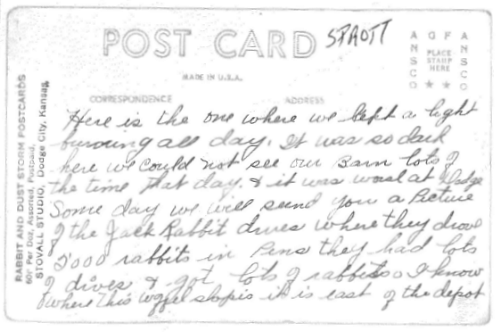 POST CARD
SPAOTT
MADE IN U.S.A.
CORRESPONDENCE
ADDRESS
ANSCO
PLACE
STAMP
HERE
ANSCO
RABBIT AND DUST STORM POSTCARDS
60¢ Per Doz. Assorted, Postpaid.
STOVALL STUDIO, Dodge City, Kansas.
Here is the one where we kept a light
burning all day. It was so dark
here we could not see our Barn lots of
the time that day. & it was worse at Dodge
Some day we will send you a Picture
of the Jack Rabbit drives where they drove
2000 rabbits in Pens they had lots
of drives & got lots of rabbits. I know
where this is it is east of the depot